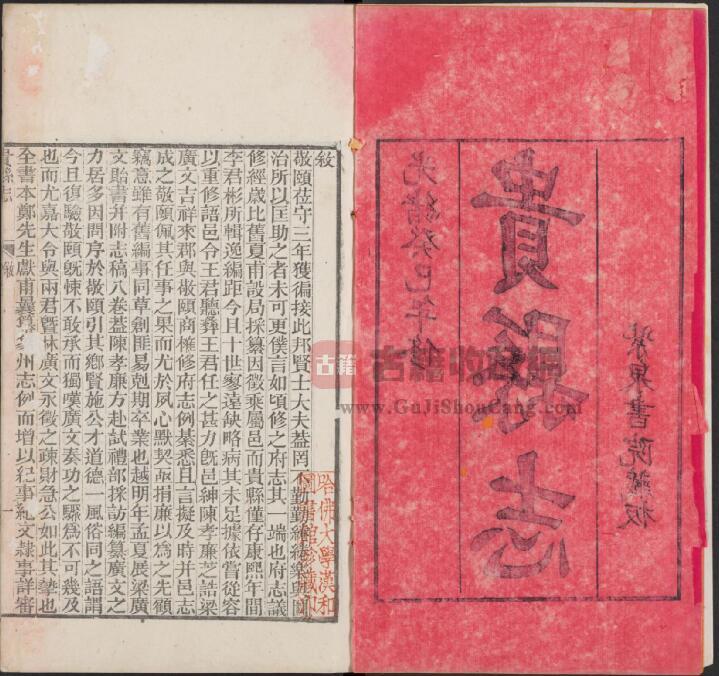 紫泉書院藏板
貴縣志
光緒癸巳年修
敘
敬頤莅守三年獲徧接此邦賢士大夫蓋罔不勤勤繾綣樂與圖
治所以匡助之者未可更僕言如頃修之府志其一端也府志議
修經歲比舊夏甫設局採纂因徵乘屬邑而貴縣僅存康熙年間
李君彬所輯逸編距今且十世寥遠缺略病其未足據依嘗從容
以重修語邑令王君聽彝王君任之甚力旣邑紳陳孝廉芝誥梁
廣文吉祥來郡與敬頤商榷修府志例綦悉且言擬及時并邑志
成之敬頤佩其任事之果而尤於夙心默契亟捐廉以為之先顧
竊意雖有舊編事同草創匪易剋期卒業也越明年孟夏展梁廣
文貽書并附志稿八卷蓋陳孝廉方赴試禮部採訪編纂廣文之
力居多因問序於敬頤引其鄉賢施公才道德一風俗同之語謂
今且復驗敬頤旣悚不敢承而獨嘆廣文奏功之驟爲不可幾及
也而尤嘉大令與兩君暨林廣文永徵之疎財急公如此其摯也
全書本鄭先生獻甫州志例而增以紀事紀文隷事詳審
貴縣志 敘 一
哈佛大學漢和圖書館珍藏印
古籍 古籍收藏網
www.GuJiShouCang.com